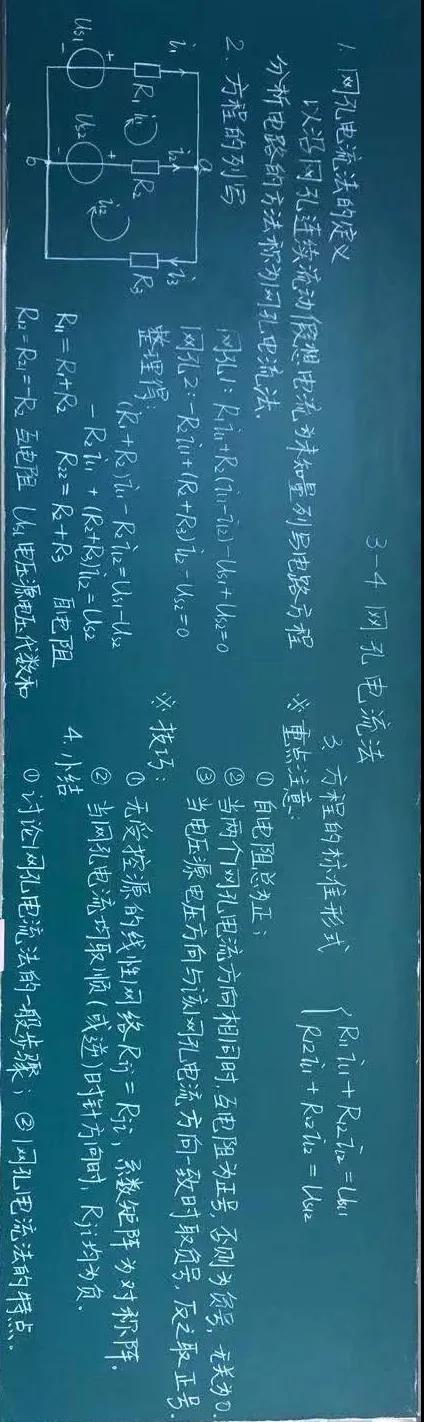 3-4 网孔电流法
1. 网孔电流法的定义
以沿网孔连续流动假想电流为未知量列写电路方程
分析电路的方法称为网孔电流法.
2. 方程的列写
i₁ i₂ i₃
a
R₁ R₂ R₃
iₗ₁ iₗ₂
+ +
Us₁ Us₂
- -
b
网孔1: R₁iₗ₁+R₂(iₗ₁-iₗ₂)-Us₁+Us₂=0
网孔2: -R₂iₗ₁+(R₂+R₃)iₗ₂-Us₂=0
整理得:
(R₁+R₂)iₗ₁-R₂iₗ₂=Us₁-Us₂
-R₂iₗ₁+(R₂+R₃)iₗ₂=Us₂
R₁₁=R₁+R₂ R₂₂=R₂+R₃ 自电阻
R₁₂=R₂₁=-R₂ 互电阻 Usₗ₁电压源电压代数和
3. 方程的标准形式
{R₁₁iₗ₁+R₁₂iₗ₂=Usₗ₁
R₁₂iₗ₁+R₂₂iₗ₂=Usₗ₂
※ 重点注意:
① 自电阻总为正;
② 当两个网孔电流方向相同时,互电阻为正号,否则为负号,无关为0.
③ 当电压源电压方向与该网孔电流方向一致时取负号,反之取正号.
※ 技巧:
① 无受控源的线性网络Rij=Rji,系数矩阵为对称阵.
② 当网孔电流均取顺(或逆)时针方向时,Rji均为负.
4. 小结
① 讨论网孔电流法的一般步骤; ② 网孔电流法的特点.